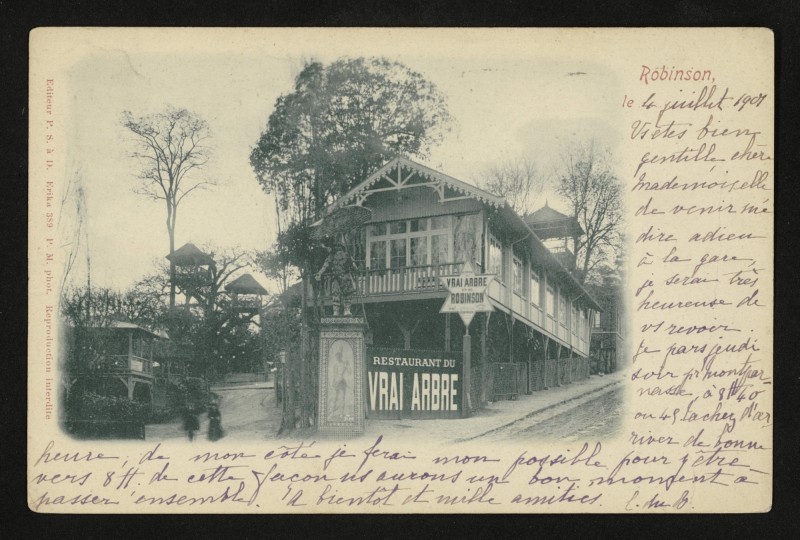 Robinson,
le 4 juillet 1901
Vs êtes bien
gentille chère
Mademoiselle
de venir me
dire adieu
à la gare,
je serai très
heureuse de
vs revoir.
Je pars jeudi
soir pr montpar-
nasse, à 8H40
ou 45 tachez d'ar
river de bonne
heure, de mon côté je ferai mon possible pour y être
vers 8H. de cette façon ns aurons un bon moment à
passer ensemble. A bientôt et mille amitiés.
VRAI ARBRE
DE
ROBINSON
RESTAURANT DU
VRAI ARBRE
Editeur P. S. à D. Erika 389 P. M. phot. Reproduction interdite